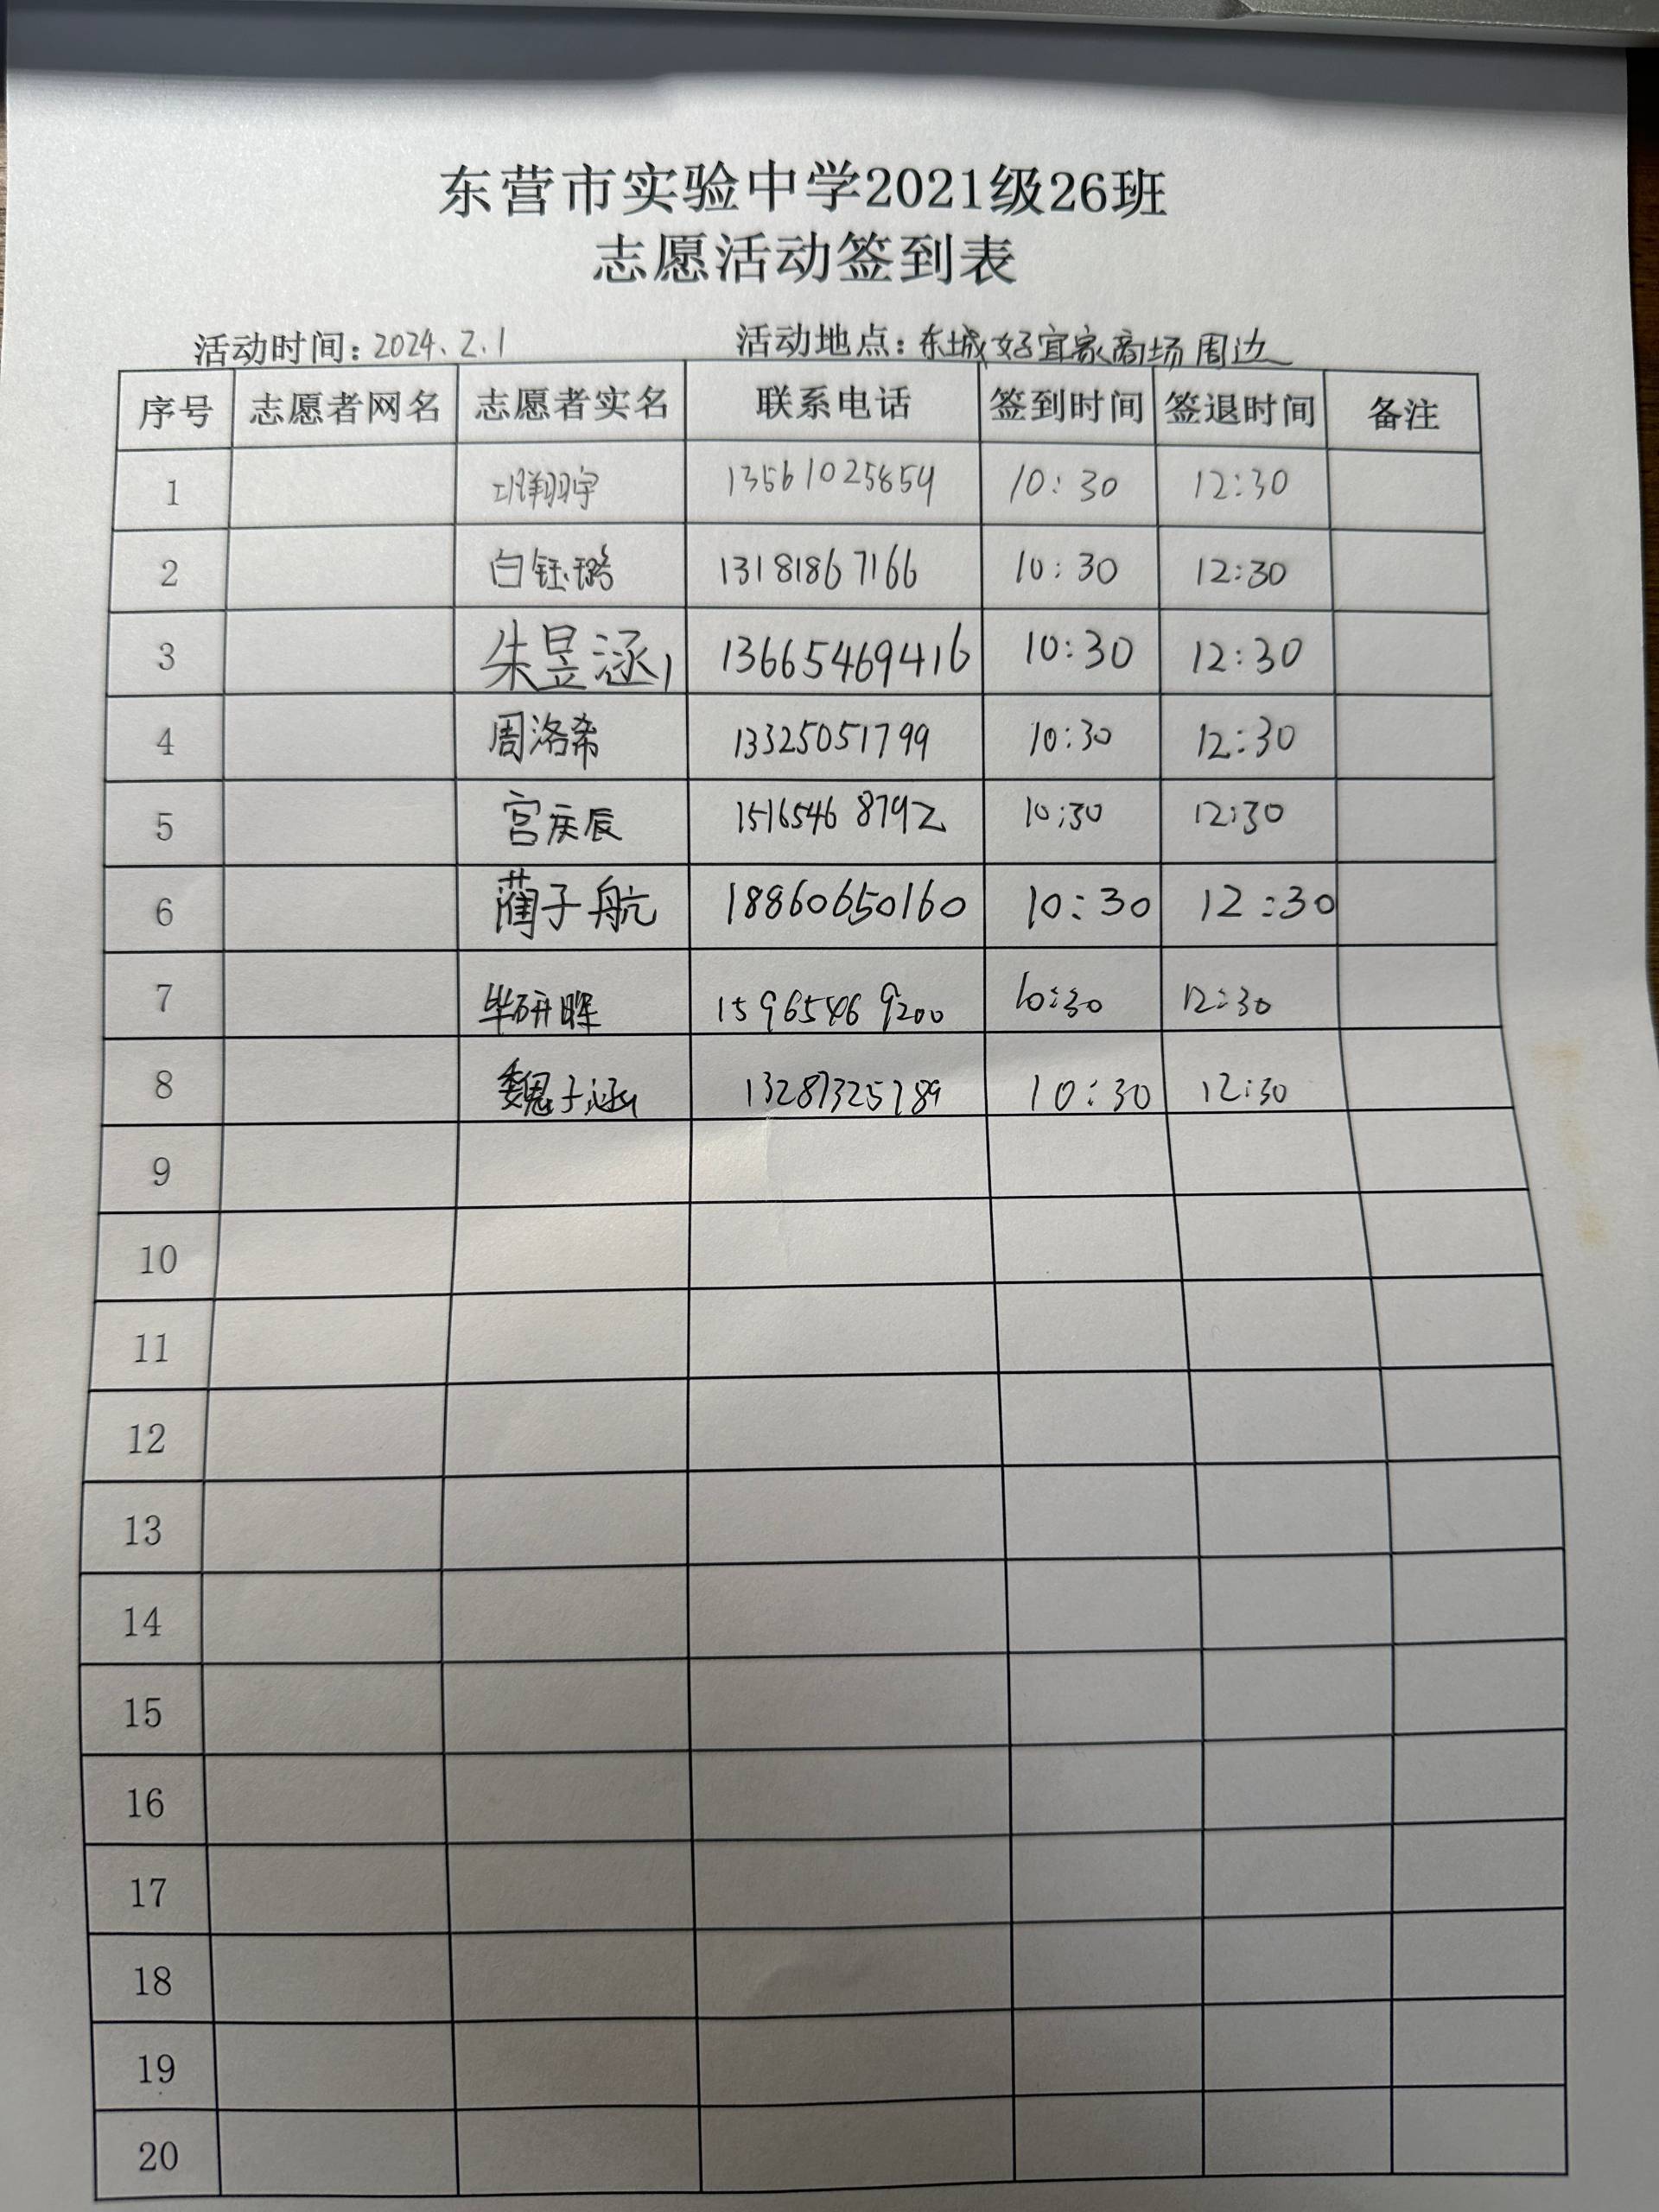 东营市实验中学2021级26班
志愿活动签到表
活动时间:2024.2.1 活动地点:东城好宜家商场周边
序号 志愿者网名 志愿者实名 联系电话 签到时间 签退时间 备注
1 翔宇 13561025859 10:30 12:30
2 白钰璐 13181867166 10:30 12:30
3 朱昱涵 13665469416 10:30 12:30
4 周洛希 13325051799 10:30 12:30
5 宫庆辰 15165468792 10:30 12:30
6 蔺子航 18860650160 10:30 12:30
7 毕研晖 15965469200 10:30 12:30
8 魏子涵 13287325789 10:30 12:30
9
10
11
12
13
14
15
16
17
18
19
20